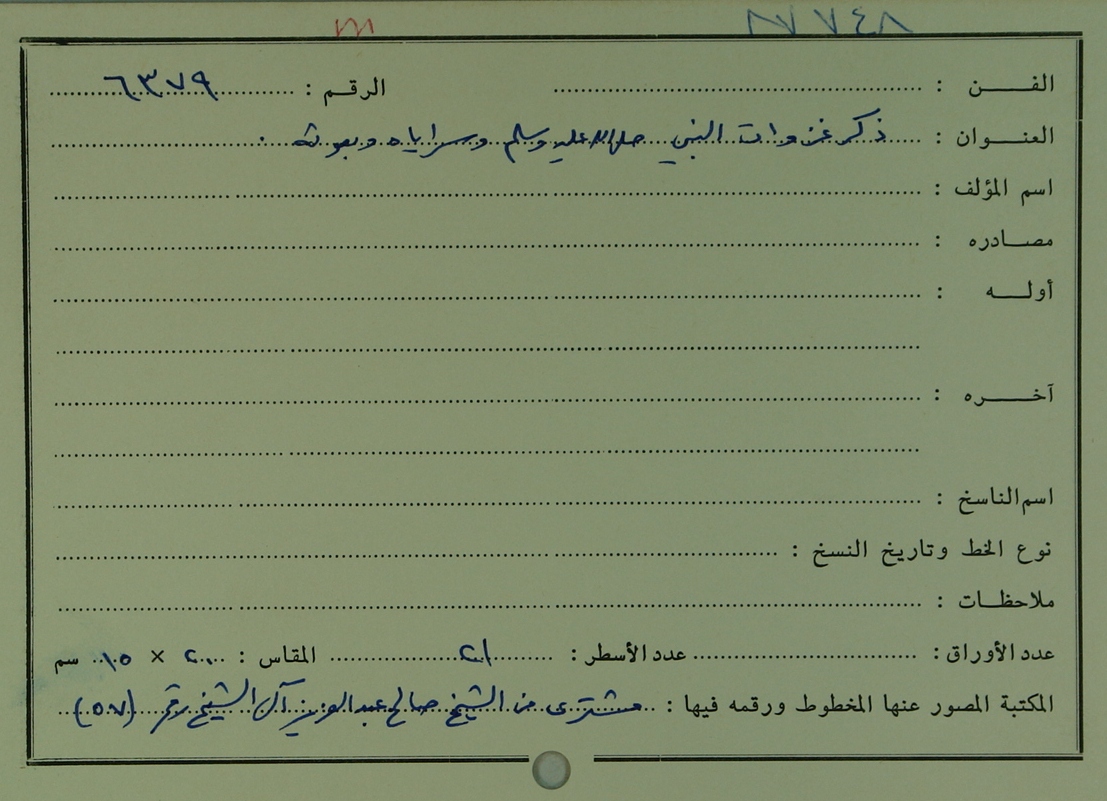 ٨٧٧٤٨ m
الفن : الرقم : ٦٣٧٩
العنوان : ذكر غزوات النبي صلى الله عليه وسلم وسراياه وبعوثه .
اسم المؤلف :
مصادره :
أوله :
آخره :
اسم الناسخ :
نوع الخط وتاريخ النسخ :
ملاحظات :
عدد الأوراق : عدد الأسطر : ٢١ المقاس : ٢٠ × ١٥ سم
المكتبة المصور عنها المخطوط ورقمه فيها : مشترى من الشيخ صالح عبدالعزيز آل الشيخ رقم (٥٧)